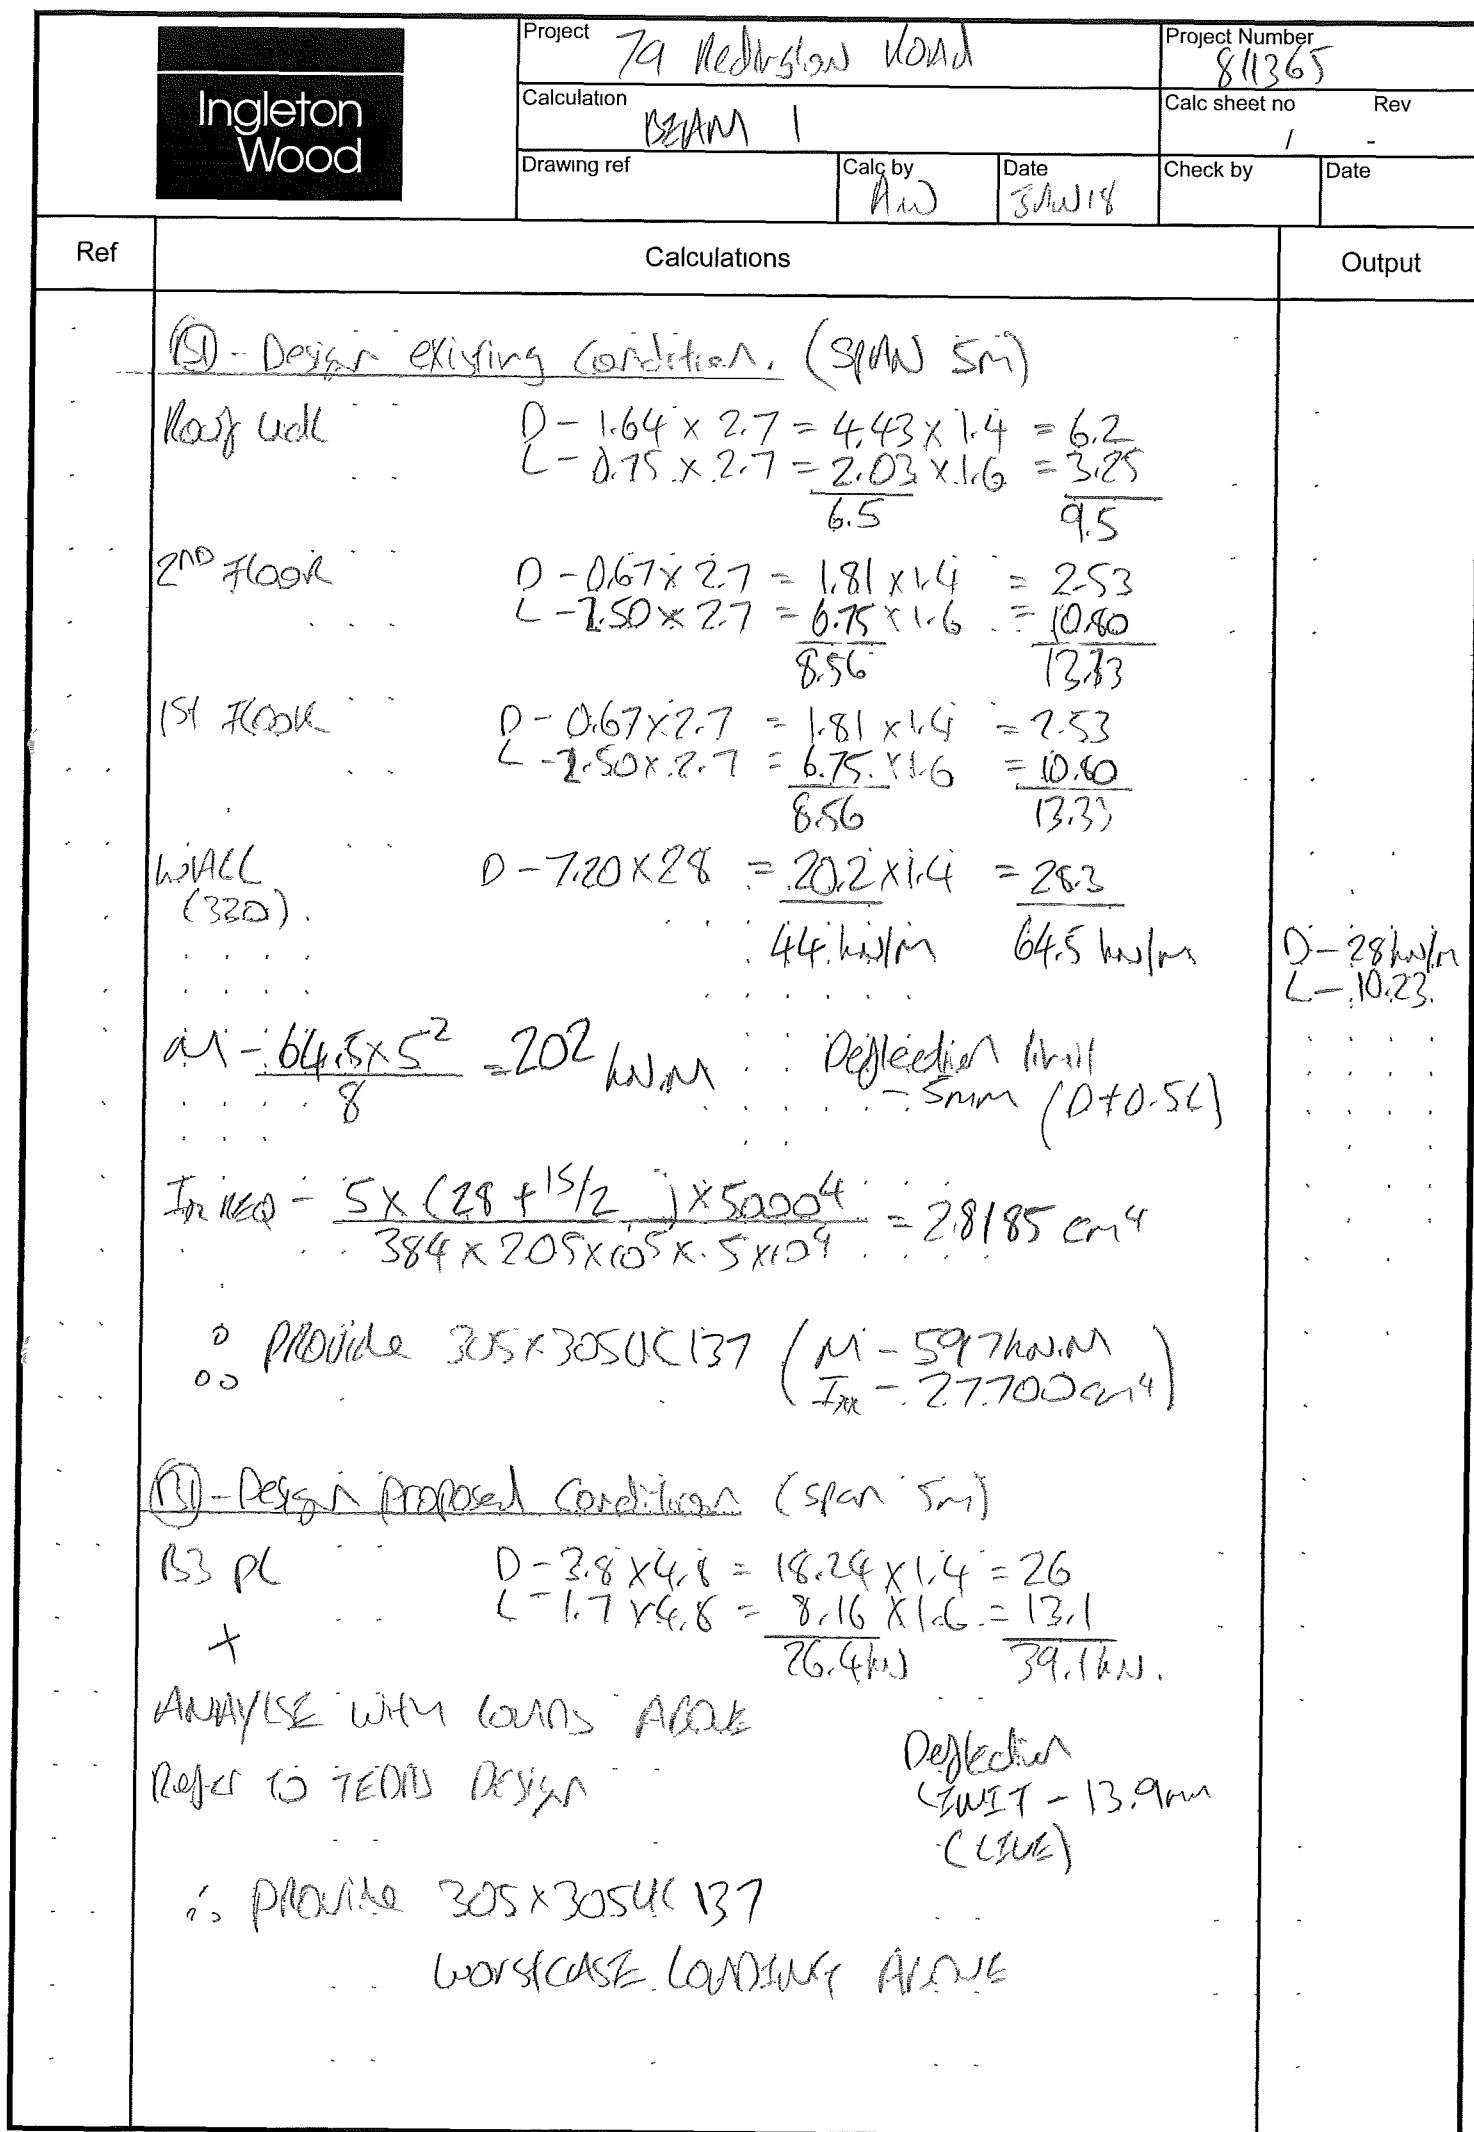 Ingleton
Wood
Project 79 Redington Road
Project Number 811365
Calculation BEAM 1
Calc sheet no 1
Rev -
Drawing ref
Calc by AW
Date JAN 18
Check by
Date
Ref
Calculations
Output
(B1) - Design existing condition. (SPAN 5m)
Roof udl D - 1.64 x 2.7 = 4.43 x 1.4 = 6.2
L - 0.75 x 2.7 = 2.03 x 1.6 = 3.25
6.5 9.5
2ND FLOOR D - 0.67 x 2.7 = 1.81 x 1.4 = 2.53
L - 2.50 x 2.7 = 6.75 x 1.6 = 10.80
8.56 13.33
1ST FLOOR D - 0.67 x 2.7 = 1.81 x 1.4 = 2.53
L - 2.50 x 2.7 = 6.75 x 1.6 = 10.80
8.56 13.33
WALL D - 7.20 x 28 = 20.2 x 1.4 = 28.3
(330).
44 kN/m 64.5 kN/m
D - 28 kN/m
L - 10.23.
M - 64.5 x 5² / 8 = 202 kN.M
Deflection limit
- 5mm (D+0.5L)
Ixx REQ - 5 x (28 + 15/2 ) x 5000⁴ / 384 x 205 x 10⁵ x 5 x 10⁴ = 28185 cm⁴
∴ PROVIDE 305 x 305 UC 137 (M - 597 kN.M
Ixx - 27700 cm⁴)
(B1) - Design Proposed Condition (span 5m)
B3 PL D - 3.8 x 4.8 = 18.24 x 1.4 = 26
L - 1.7 x 4.8 = 8.16 x 1.6 = 13.1
+
26.4 kN 39.1 kN.
ANAYLSE WITH LOADS ABOVE
Refer to TEDDS Design
Deflection
LIMIT - 13.9mm
(LIVE)
∴ PROVIDE 305 x 305 UC 137
WORSTCASE LOADING ABOVE